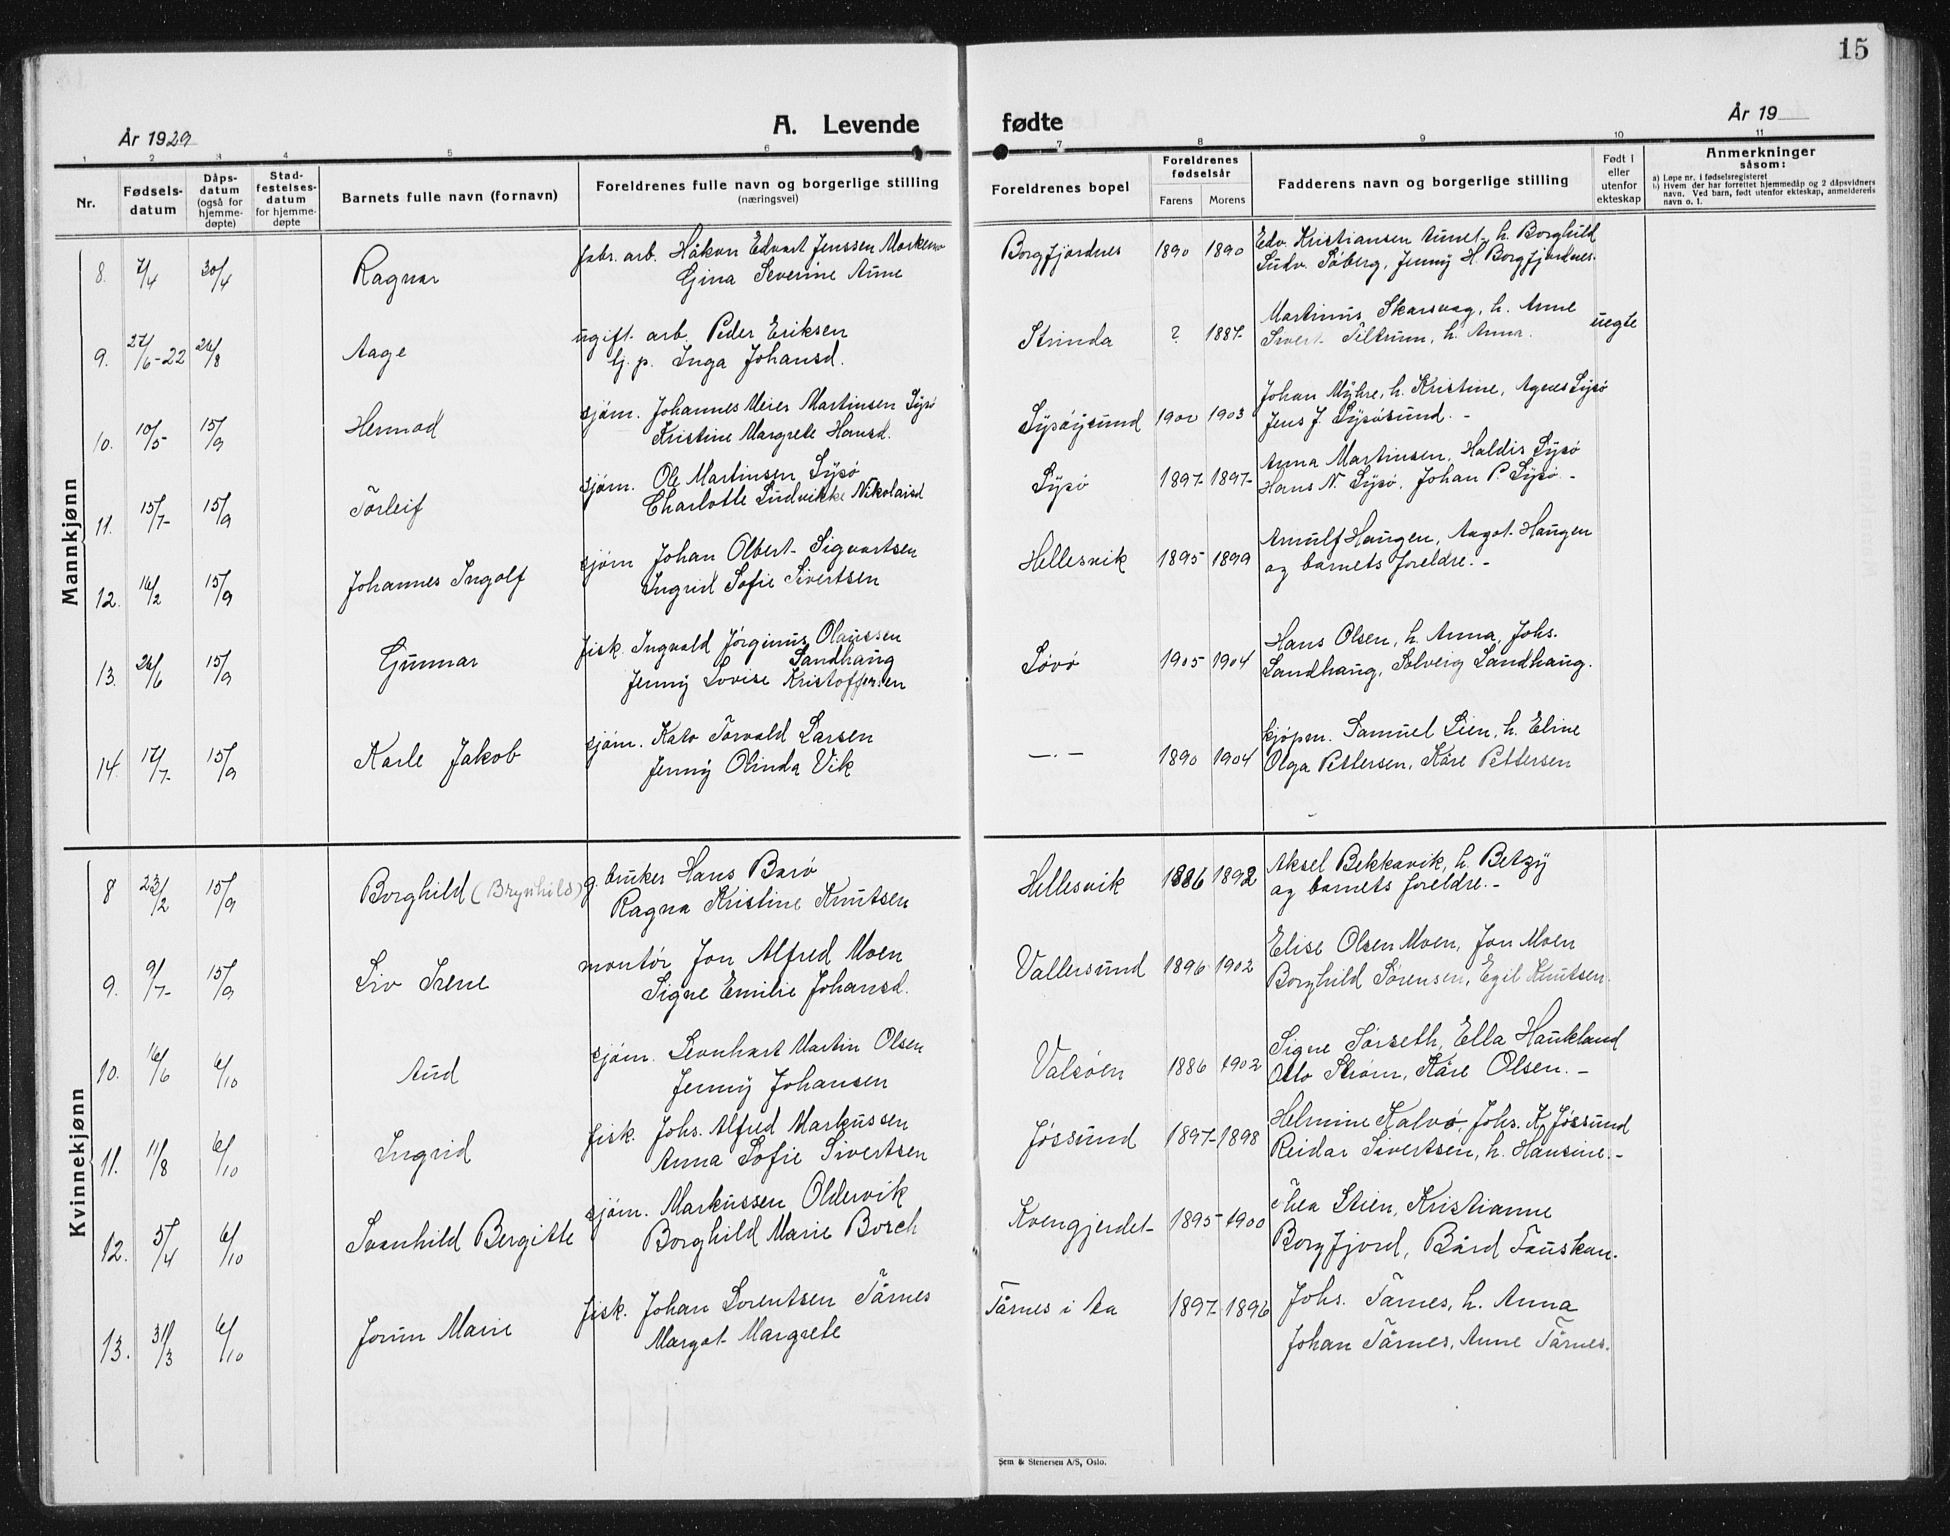 15
År 1929
A. Levende fødte
År 19
1 2 3 4 5 6 7 8 9 10 11
Nr.
Fødsels-datum
Dåps-datum (også for hjemme-døpte)
Stad-festelses-datum for hjemme-døpte
Barnets fulle navn (fornavn)
Foreldrenes fulle navn og borgerlige stilling (næringsvei)
Foreldrenes bopel
Foreldrenes fødselsår
Farens Morens
Fadderens navn og borgerlige stilling
Født i eller utenfor ekteskap
Anmerkninger såsom:
a) Løpe nr. i fødselsregisteret
b) Hvem der har forrettet hjemmedåp og 2 dåpsvidners navn. Ved barn, født utenfor ekteskap, anmelderens navn o. l.
Mannkjønn
fabr. arb. Håkon Edvart Jenssen Edv. Kristiansen Aunet, h. Borghild
8. 7/4 30/4 Ragnar Gina Severine Aune Borgfjordnes 1890 1890 Ludv. Søberg, Jenny H. Borgfjordnes.
ugift. arb. Peder Eriksen Martinus Skarsvåg, h. Anne
9. 27/6-22 24/8 Aage tj. p. Inga Johansd. Strinda ? 1887 Sivert Tiltrum, h. Anna. uegte
sjøm. Johannes Meier Martinsen Lysø Johan Myhre, h. Kristine, Agnes Lysø
10. 10/5 15/9 Hermod Kristine Margrete Hansd. Lysøysund 1902 1903 Jens J. Lysøsund. -
sjøm. Ole Martinsen Lysø Anna Martinsen, Haldis Lysø
11. 15/7 15/9 Torleif Charlotte Ludvikke Nikolaisd Lysø 1897 1897 Hans N. Lysø, Johan P. Lysø -
sjøm Johan Olbert Sigvartsen Arnulf Haugen, Aagot Haugen
12. 14/2 15/9 Johannes Ingolf Ingrid Sofie Sivertsen Hellesvik 1895 1899 og barnets foreldre. -
fisk. Ingvald Jørginus Olaussen Sandhaug Hans Olsen, h. Anna, Johs.
13. 26/6 15/9 Gunnar Jenny Lovise Kristoffersen Løvø 1905 1904 Sandhaug, Solveig Sandhaug.
sjøm. Kato Torvald Larsen kjøpm. Samuel Lien, h. Eline
14. 17/7 15/9 Karle Jakob Jenny Olinda Vik — . — 1890 1904 Olga Pettersen, Kåre Pettersen
Kvinnekjønn
g. bruker Hans Barø Aksel Bekkavik, h. Betzy
8 23/2 15/9 Borghild (Brynhild) Ragna Kristine Knutsen Hellesvik 1886 1892 og barnets foreldre. -
montør Jon Alfred Moen Elise Olsen Moen, Jon Moen
9. 9/7 15/9 Liv Irene Signe Emilie Johansd. Vallersund 1896 1902 Borghild Sørensen, Egil Knutsen.
sjøm. Leonhart Martin Olsen Signe Sørseth, Ella Haukland
10. 16/6 6/10 Aud Jenny Johansen Valsøen 1886 1902 Otto Strøm, Kåre Olsen. -
fisk. Johs. Alfred Markussen Helmine Kalvø, Johs. K. Jøssund
11. 11/8 6/10 Ingrid Anna Sofie Sivertsen Jøssund 1897 1898 Reidar Sivertsen, h. Hansine. -
sjøm. Markussen Oldervik Thea Stien, Kristianne
12. 5/4 6/10 Svanhild Bergitte Borghild Marie Borch Kvengjerdet 1895 1900 Borgfjord, Bård Fauskan.
fisk. Johan Lorentsen Tårnes Johs. Tårnes, h. Anna
13. 31/3 6/10 Jorun Marie Margot Margrete Tårnes i Aa 1897 1896 Johan Tårnes, Anne Tårnes.
Sem & Stenersen A/S, Oslo.